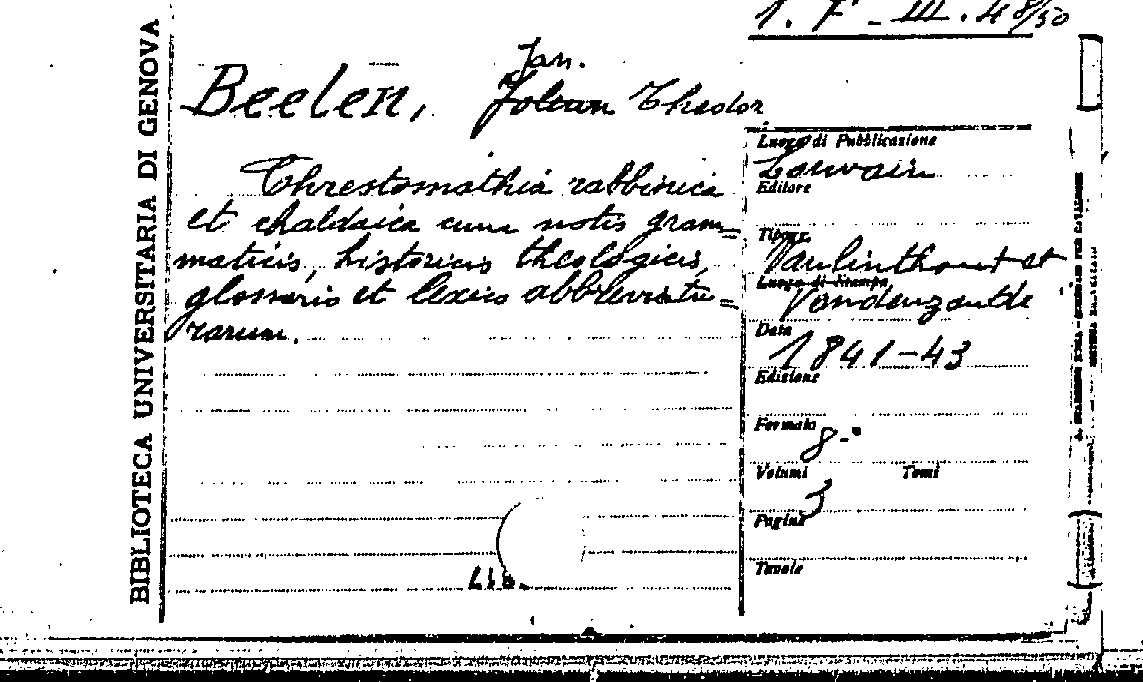 1. F - III. 48/50
BIBLIOTECA UNIVERSITARIA DI GENOVA
Jan.
Beelen, Theodor
Chrestomathia rabbinica
et chaldaica cum notis gram=
maticis, historicis theologicis,
glossario et lexico abbreviatu=
rarum.
Luogo di Pubblicazione
Louvain
Editore
Tipogr.
Vanlinthout et
Luogo di Stampa
Vandenzande
Data
1841-43
Edizione
Formato
8-°
Volumi Tomi
3
Pagine
Tavole